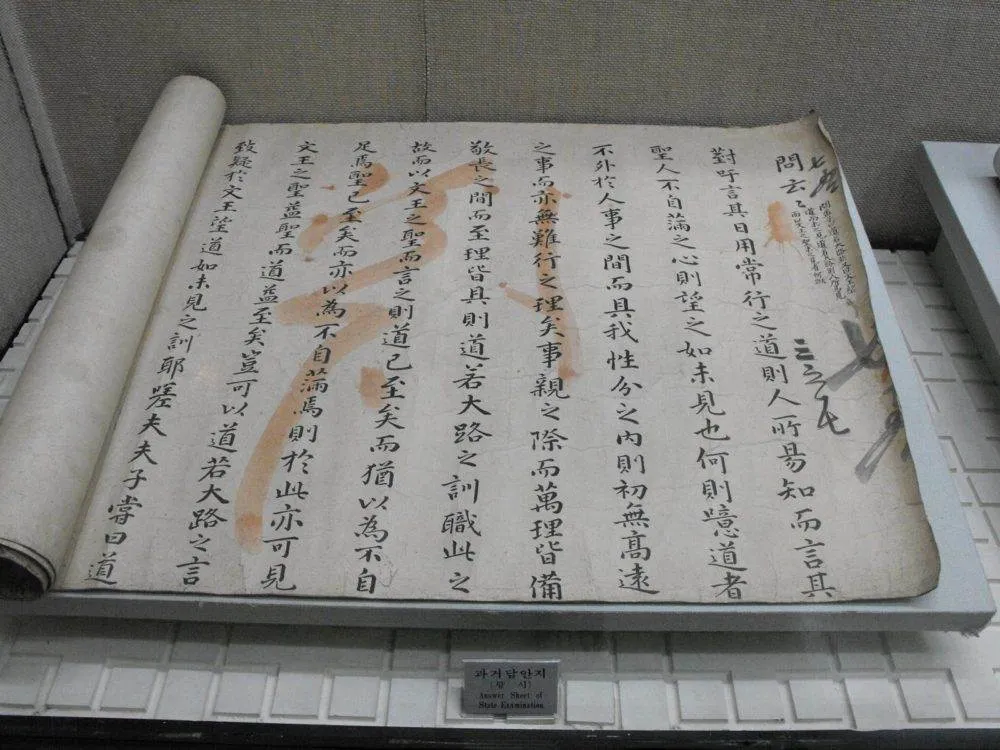 問云〻
三之七
對吁言其日用常行之道則人所易知而言其
聖人不自滿之心則望之如未見也何則噫道者
不外於人事之間而具我性分之內則初無高遠
之事而亦無難行之理矣事親之際而萬理皆備
敬長之間而至理皆具則道若大路之訓職此之
故而以文王之聖而言之則道已至矣而猶以為不自
足焉聖已至矣而亦以為不自滿焉則於此亦可見
文王之聖益聖而道益至矣豈可以道若大路之言
致疑於文王望道如未見之訓耶嗟夫夫子嘗曰道
과거답안지
Answer Sheet of
State Examination